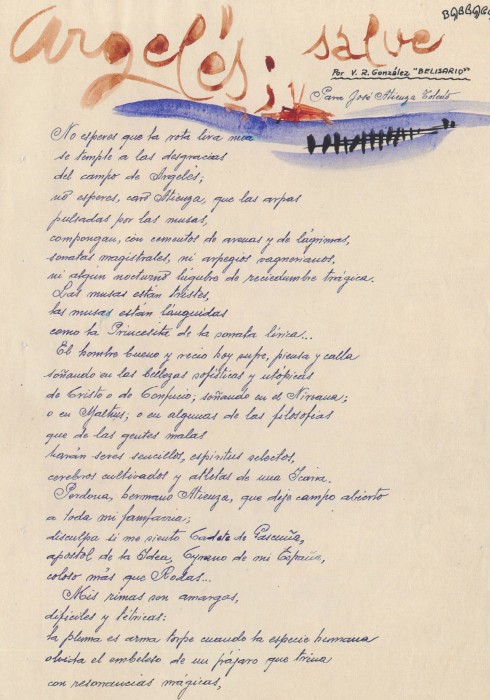 Argelés, salve
Por V. R. González "BELISARIO"
Para José Atienza Toledo
No esperes que la rota lira mia
se temple a las desgracias
del campo de Argelés;
no esperes, caro Atienza, que las arpas
pulsadas por las musas,
compongan, con cementos de arenas y de lágrimas,
sonatas magistrales, ni arpegios vagnerianos,
ni algún nocturno lúgubre de reciedumbre trágica.
Las musas están tristes,
las musas están lánguidas
como la Princesita de la sonata lírica...
El hombre bueno y recio hoy sufre, piensa y calla
soñando en las bellezas sofísticas y utópicas
de Cristo o de Confucio; soñando en el Nirvana;
o en Maltus; o en algunas de las filosofias
que de las gentes malas
harán seres sencillos, espíritus selectos,
cerebros cultivados y atletas de una Icaria.
Perdona, hermano Atienza, que deje campo abierto
a toda mi fanfarria;
disculpa si me siento Cadete de Gascuña,
apóstol de la Idea, Cyrano de mi España,
coloso más que Rodas...
Mis rimas son amargas,
difíciles y tétricas:
la pluma es arma torpe cuando la especie humana
olvida el embeleso de un pájaro que trina
con resonancias mágicas,